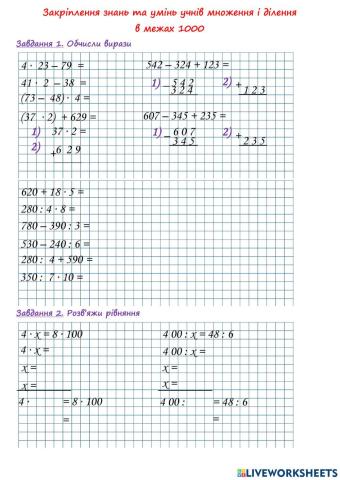 Закріплення знань та умінь учнів множення і ділення
в межах 1000
Завдання 1. Обчисли вирази
4 · 23 – 79 =
41 · 2 – 38 =
(73 – 48) · 4 =
(37 · 2) + 629 =
1) 37 · 2 =
2) + 6 2 9
542 – 324 + 123 =
1) – 5 4 2
3 2 4
2) +
1 2 3
607 – 345 + 235 =
1) – 6 0 7
3 4 5
2) +
2 3 5
620 + 18 · 5 =
280 : 4 · 8 =
780 – 390 : 3 =
530 – 240 : 6 =
280 : 4 + 590 =
350 : 7 · 10 =
Завдання 2. Розв'яжи рівняння
4 · x = 8 · 100
4 · x =
x =
x =
4 · = 8 · 100
=
4 00 : x = 48 : 6
4 00 : x =
x =
x =
4 00 : = 48 : 6
=
LIVEWORKSHEETS